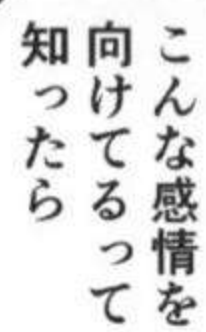 こんな感情を
向けてるって
知ったら